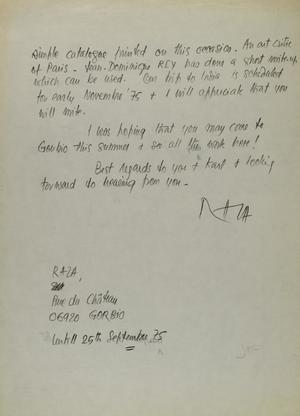 simple catalogue printed on this occasion. An art critic
of Paris - Jean-Dominique REY has done a short write-up
which can be used. Our trip to India is scheduled
for early Novembre '75 & I will appreciate that you
will write.
I was hoping that you may come to
Gorbio this summer & see all the work here!
Best regards to you & Kant & looking
forward to hearing from you -
RAZA
RAZA,
Rue du Château
06920 GORBIO
Untill 25th Septembre 75